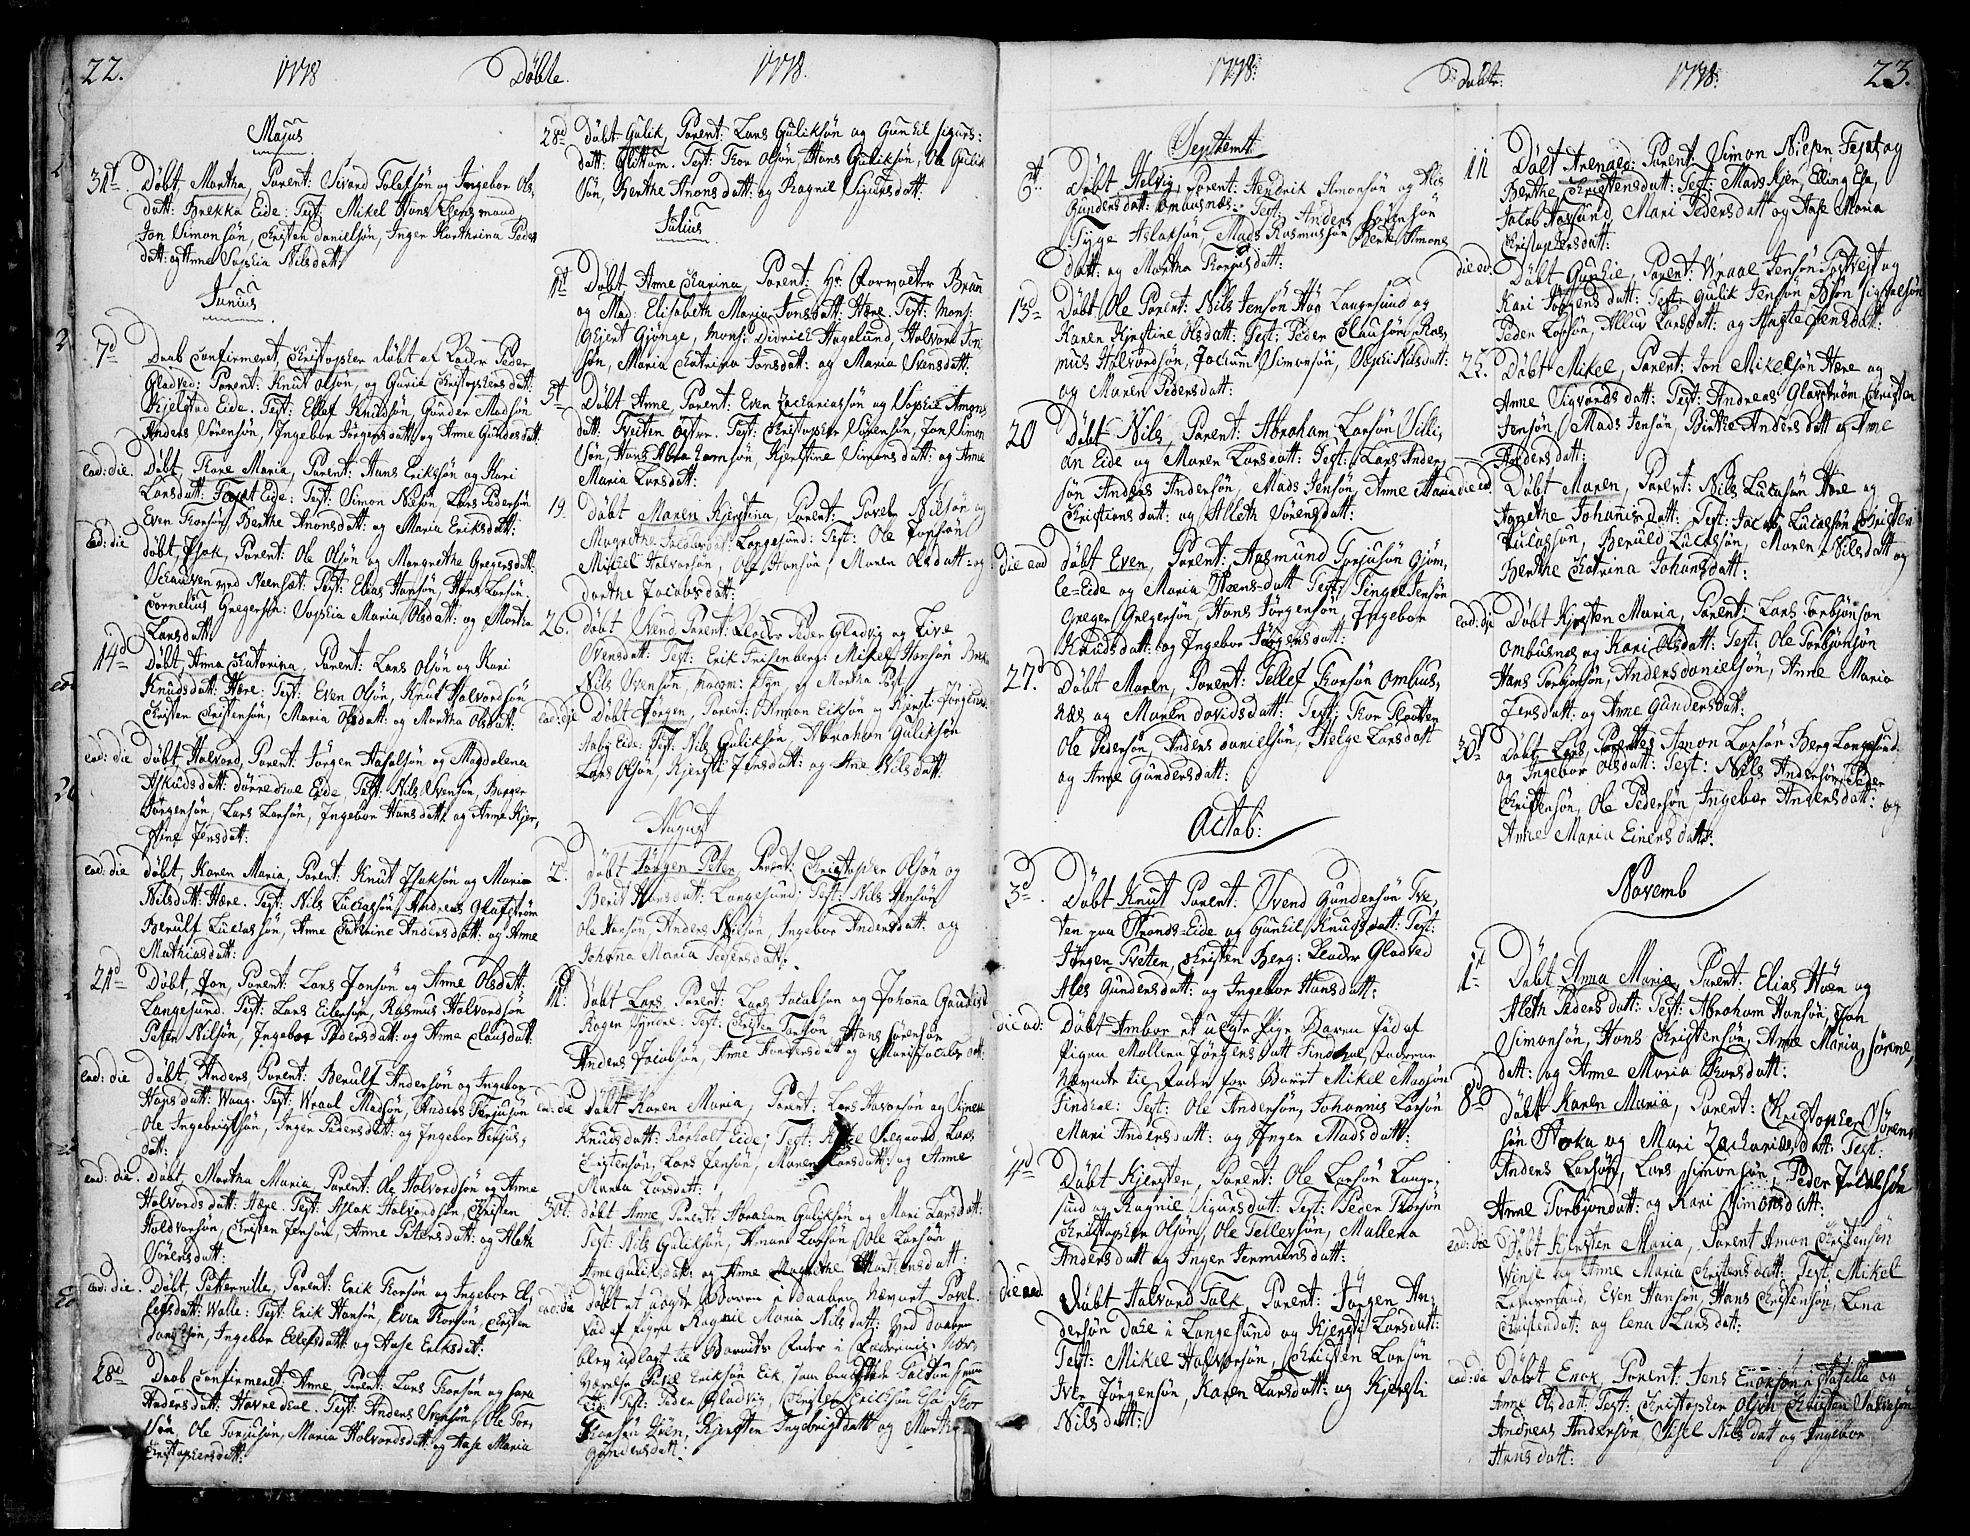 22. 1778 Döbte. 1778.
Majus
31t. Döbt, Martha, Parent: Sivord Tolefsön og Ingebor Ols
datt: Brekka Eide: Test: Mikel Hans
Jon Simonsön, Christen Danielsön, Inger Kathrina Peders
datt: og Anne Sophia Nilsdatt:
Junius
7d Daab Confirmeret, Christopher döbt af Peder
Gladved: Parent: Knut Olsön, og Guria Christophersdatt:
Kjelstad Eide. Test: Ellef Knudsön, Gunder Madsön
Anders Sörensön, Ingebor Jörgensdatt: og Anne Gundersdatt:
ead: die. Döbt, Thore Maria, Parent: Hans Eriksön og Kari
Larsdatt: Eide: Test: Simon Nilsön, Lars Pedersön
Even Thorsön, Berthe Anonsdatt: og Maria Eriksdatt:
ead: die döbt, Isak, Parent: Ole Olsön og Margrethe Gregersdatt:
Test: Elias Hansön, Hans Larsön
Cornelius Gregersön: Sophia Maria Olsdatt: og Martha
Larsdatt:
14d Döbt, Anna Catarina, Parent: Lars Olsön og Kari
Knudsdatt: Hære: Test: Even Olsön, Knut Halvordsön
Christen Christensön, Maria Olsdatt: og Martha Olsdatt:
ead: die döbt Halvord, Parent: Jörgen og Magdalena
Eide, Test: Nils Svensön, Borger
Jörgensön, Lars Larsön, Ingebor Hansdatt: og Anne Kjer,
stine Jensdatt:
ead: die döbt, Karen Maria, Parent: Knut Isaksön og Maria
Nilsdatt: Hære. Test: Nils Lucassön, Andreas Glafström
Berulf Lucassön, Anne Cathrine Andersdatt: og Anne
Mathiasdatt:
21d Döbt, Jon, Parent: Lars Jonsön og Anne Olsdatt:
Langesund. Test: Lars Eilersön, Rasmus Halvordsön
Peter Nilsön, Ingebor Pedersdatt: og Anne Clausdatt:
ead: die döbt, Anders, Parent: Berulf Andersön og Ingebor
Hansdatt: Waag: Test: Wraal Madsön, Anders Terjusön
Ole Ingebrigtsön, Inger Pedersdatt: og Ingebor Terjus,
datt:
ead: die. Döbt, Martha Maria, Parent: Ole Halvordsön og Anne
Halvordsdatt: Hære. Test: Aslak Halvordsön, Christen
Holdvorsön, Christen Jensön, Anne Petersdatt: og Aleth
Sörensdatt:
ead: die. Döbt, Petternille, Parent: Erik Thorsön og Ingebor El,
lefsdatt: Walle: Test: Erik Hansön, Even Thorsön, Christen
Ingebor Ellefsdatt: og Aase Eriksdatt:
28d Daab Confirmeret Anne, Parent: Lars Thorsön og Sara
Andersdatt: Havredal. Test: Anders Svensön, Ole Tor,
sön, Ole Torjusön, Maria Halvordsdatt: og Aase Maria
Christophersdatt:
28d Döbt Gulik, Parent: Lars Guliksön og Gunhil Sigurs:
datt: Test: Thor Olsön, Hans Guliksön, Ole Gulik
sön, Berthe Anonsdatt: og Ragnil Sigursdatt:
Julius
Döbt Anne Carina, Parent: Hr. Forvalter Brun
og Mad: Elisabeth Maria Jonsdatt: Hære. Test: Mons:
Gjert Gjönge, Mons: Didrich Hagelund, Halvord Jon
sön, Maria Catrina Jonsdatt: og Maria Svensdatt:
5t Döbt Anne, Parent: Even Zachariassön og Sophie Amons,
datt: Tveiten Test: Christopher Sörensön, Jon Simon
sön, Hans Abrahamsön, Kjerstine Simonsdatt: og Anne
Maria Larsdatt:
19. döbt Maren Kjerstina, Parent: Povel Nilsön og
Magrethe Jacobsdatt Langesund: Test: Ole
Mikkel Halvorsön, Ole Hansön, Maren Olsdatt: og
Dorthe Jacobsdatt:
26. döbt Svend, Parent: Peder Gladvig og Live
Svensdatt: Test: Erik Frisenberg: Mikel Hansön
Nils Svensön, og Martha
ead: die Döbt Jörgen, Parent: Simon Eiksön og Kjerst: Jörgens
Eide: Test: Nils Guliksön, Abraham Guliksön
Lars Olsön, Kjersti Jensdatt: og Ane Nilsdatt:
August
2. döbt Jörgen Peter, Parent: Christopher Olsön og
Berit Hansdatt: Langesund: Test: Nils Hansön
Ole Hansön, Anders Nilsön, Ingebor Andersdatt: og
Johana Maria
döbt Lars Parent: Lars Jacobsön og Johana
Test: Christen Hans Sörensön
Anders Jacobsön, Anne og Mari Jacobsdatt:
ead: die döbt Karen Maria, Parent: Lars Halvorsön og
Knudsdatt: Rörholt Eide: Test: Lars
Lars Jensön, Maren Larsdatt: og Anne
Maria Larsdatt:
30t. döbt Anne, Parent: Abraham Guliksön og Mari Larsdatt:
Test: Nils Guliksön, Ole Larsön
Anne Guliksdatt: og Anne Magrethe Mortensdatt:
ead: die döbt et uægte Barn i Daaben nævnt Povel.
född af Pigen Ragnil Maria Nilsdatt: ved daaben
blev udlagt til Barnets Fader i
Eriksön Eik, som
Eid: Test: Peder Gladvig, Christen Eriksön Thor
Kjersten Ingebrigtsdatt og Martha
Gundersdatt:
1778: Döbte: 1778: 23.
Septemb
6t. Döbt Helvig, Parent: Hendrik Simonsön og
Gundersdatt: Ombusnæs: Test: Anders Sörensön
Tyge Aslaksön, Mads Rasmussön Berte Simons
datt: og Martha
13d Döbt Ole Parent: Nils Jensön Langesund og
Karen Kjerstine Olsdatt: Test: Peder Clausön, Ras,
mus Halvordsön, Jochum Simonsön, Sophi Nilsdatt:
og Maren Pedersdatt:
20 Döbt Nils, Parent: Abraham Larsön Villi,
an Eide og Maren Larsdatt: Test: Lars Ander,
sön Anders Andersön, Mads Jensön, Anne Maria
Christensdatt: og Alleth Sörensdatt:
die ead döbt Even, Parent: Aasmund Torjusön Gjöm,
le=Eide og Maria Test: Tingel Jensön
Greger Gregersön, Hans Jörgensön, Ingebor
Knudsdatt: og Ingebor Jörgensdatt:
27d Döbt Maren, Parent: Tellef Thorsön Ombus,
næs og Maren Davidsdatt: Test: Thor
Ole Pedersön, Anders Danielsön, Helge Larsdatt
og Anne Gundersdatt:
Octob:
3d. Döbt Knut Parent: Svend Gundersön Tve,
ten paa Strands=Eide og Gunhil Knudsdatt: Test:
Jörgen Tveten, Christen Berg: Gladved
Ales Gundersdatt: og Ingebor Hansdatt:
die ead: Döbt Ambor et uegte Pige Baren Föd af
Pigen Mallena Jörgensdatt Findhal, Faderen
nævnte til Fader for Barnet Mikel Madsön
Findhal: Test: Ole Andersön, Johannis Larsön
Mari Andersdatt: og Inger Madsdatt:
4d Döbt Kjersten, Parent: Ole Larsön Lange,
sund og Ragnil Sigursdatt: Test: Peder Thorsön
Christopher Olsön, Ole Tellefsön, Mallena
Andersdatt: og Inger
die ead Döbt Halvord Falk, Parent: Jörgen An,
dersön Dahl i Langesund og Kjersti Larsdatt:
Test: Mikel Halvorsön, Christen Larsön
Iver Jörgensön, Karen Larsdatt: og Kjersti
Nilsdatt:
11 Döbt Parent: Simon Nielsen og
Berthe Christensdatt: Test: Mads Elling
Jacob Mari Pedersdatt og Aase Maria
Christophersdatt:
die ed: Döbt Gunhil, Parent: Wraal Jensön og
Kari Jörgensdatt: Test: Gulik Jensön
Peder Larsön, Larsdatt: og Jensdatt:
25. Döbt Mikel, Parent: Jon Mikelsön Hære og
Anne Sigvordsdatt: Test: Andreas Glavström, Christen
Jensön, Mads Jensön, Birthe Andersdatt og Anne
Andersdatt:
die ed. Döbt Maren, Parent: Nils Lucasön Hære og
Agnethe Johanisdatt: Test: Jacob Lucasön, Christen
Lucassön, Beruld Lucassön, Maren Nilsdatt og
Berthe Catrina Johansdatt:
ead: die Döbt Kjersten Maria, Parent: Lars Torbjönsön
Ombusnæs og Kari Olsdatt: Test: Ole Torbjönsön
Hans Torbjönsön, Anders Danielsön, Anne Maria
Jensdatt: og Anne Gundersdatt:
30t Döbt Lars, Parentes Amon Larsön Berg Langesund
og Ingebor Olsdatt: Test: Nils Andersön, Peder
Christensön, Ole Pedersön, Ingebor Andersdatt: og
Anne Maria Einersdatt:
Novemb
1t. Döbt Anna Maria, Parent: Elias og
Aleth Pedersdatt: Test: Abraham Hansön, Jon
Simonsön, Hans Christensön, Anne Maria Sörens,
datt: og Anne Maria Thorsdatt:
8d Döbt Karen Maria, Parent: Christopher Sören
sön og Mari Zachariasdatt: Test:
Anders Larsön, Lars Simonsön, Peder
Anne Torbjöndatt: og Kari Simonsdatt:
ead: die Döbt Kjersten Maria, Parent Amon Christensön
Winje og Anne Maria Christensdatt: Test: Mikel
Even Hansön, Hans Christensön, Lena
Christendatt: og Lena Larsdatt:
ead: die Döbt Enok, Parent: Jens Enoksön og
Anne Olsdatt: Test: Christopher Olsön Christen Halvorsön
Andreas Andersön, Sisel Nilsdatt og Ingebor
Hansdatt: